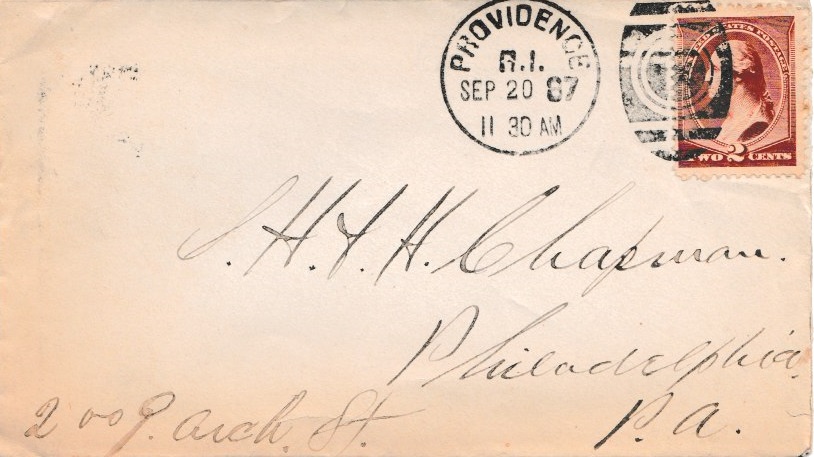 PROVIDENCE
R.I.
SEP 20 87
11 30 AM
UNITED STATES POSTAGE
TWO 2 CENTS
S. H. & H. Chapman.
Philadelphia,
P. a.
2009. arch. St.